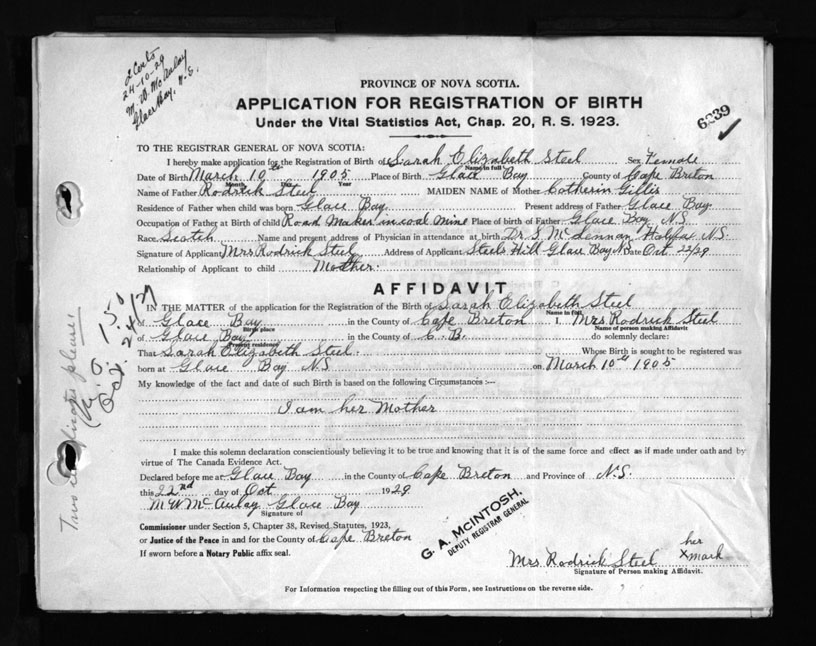 2 Certs
24-10-29
M. W. McAulay
Glace Bay, N.S.
PROVINCE OF NOVA SCOTIA.
APPLICATION FOR REGISTRATION OF BIRTH
Under the Vital Statistics Act, Chap. 20, R. S. 1923.
6239
TO THE REGISTRAR GENERAL OF NOVA SCOTIA:
I hereby make application for the Registration of Birth of Sarah Elizabeth Steel Sex Female
Name in full
Date of Birth March 10th 1905 Place of Birth Glace Bay County of Cape Breton
Month Day Year
Name of Father Rodrick Steel MAIDEN NAME of Mother Catherin Gillis
Residence of Father when child was born Glace Bay Present address of Father Glace Bay
Occupation of Father at Birth of child Road Maker in coal Mine Place of birth of Father Glace Bay N.S.
Race Scotch Name and present address of Physician in attendance at birth Dr. S. McLennan Halifax N.S.
Signature of Applicant Mrs Rodrick Steel Address of Applicant Steels Hill Glace Bay N.S. Date Oct 22/29
Relationship of Applicant to child Mother.
AFFIDAVIT
IN THE MATTER of the application for the Registration of the Birth of Sarah Elizabeth Steel
Name in full
of Glace Bay in the County of Cape Breton I. Mrs Rodrick Steel
Birth place Name of person making Affidavit
of Glace Bay in the County of C.B. do solemnly declare:
Present residence
That Sarah Elizabeth Steel. Whose Birth is sought to be registered was
born at Glace Bay NS on March 10th 1905
My knowledge of the fact and date of such Birth is based on the following Circumstances :—
I am her Mother
I make this solemn declaration conscientiously believing it to be true and knowing that it is of the same force and effect as if made under oath and by
virtue of The Canada Evidence Act.
Declared before me at Glace Bay in the County of Cape Breton and Province of N.S.
this 22nd day of Oct 1929
M W McAulay Glace Bay
Signature of
Commissioner under Section 5, Chapter 38, Revised Statutes, 1923,
or Justice of the Peace in and for the County of Cape Breton
If sworn before a Notary Public affix seal.
G. A. McINTOSH,
DEPUTY REGISTRAR GENERAL
her
Mrs Rodrick Steel x mark
Signature of Person making Affidavit.
For Information respecting the filling out of this Form, see Instructions on the reverse side.
Two certificates please.
M. O. 1.50
Oct. 24/29